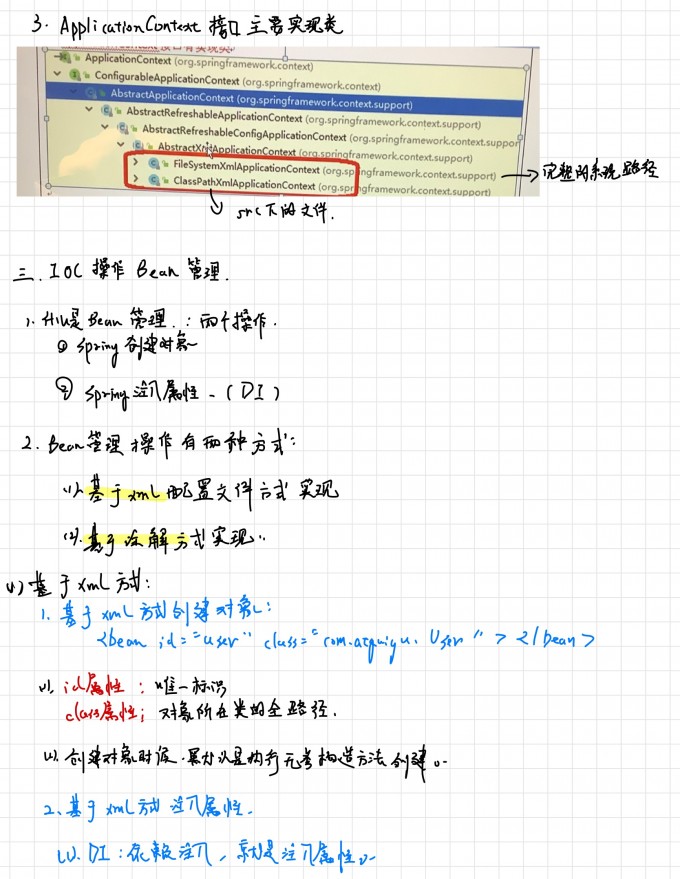 3. ApplicationContext 接口主要实现类
ApplicationContext (org.springframework.context)
ConfigurableApplicationContext (org.springframework.context)
AbstractApplicationContext (org.springframework.context.support)
AbstractRefreshableApplicationContext (org.springframework.context.support)
AbstractRefreshableConfigApplicationContext (org.springframework.context.suppor
AbstractXmlApplicationContext (org.springframework.context.support)
FileSystemXmlApplicationContext (org.springframework.context.support)
ClassPathXmlApplicationContext (org.springframework.context.support)
→ 完整的系统路径
src下的文件.
三. IOC 操作 Bean 管理.
1. 什么是 Bean 管理.: 两个操作.
① Spring 创建对象
② Spring 注入属性 - (DI)
2. Bean管理操作有两种方式:
(1) 基于xml配置文件方式实现
(2). 基于注解方式实现..
(1) 基于 xml 方式:
1. 基于 xml 方式创建对象:
<bean id="user" class="com. User"> </bean>
(1). id属性: 唯一标识
class属性; 对象所在类的全路径.
创建对象时候.默认是执行无参构造方法创建。
2、基于 xml方式 注入属性.
(1). DI: 依赖注入, 就是注入属性。